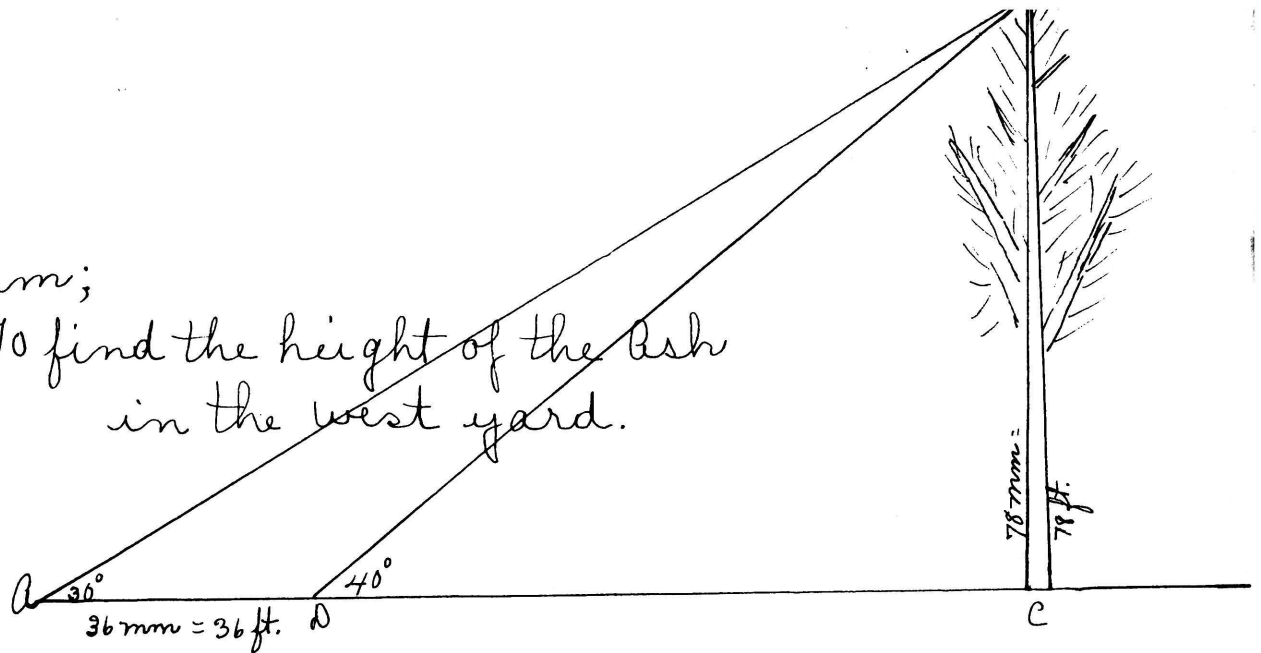 m;
To find the height of the Ash
in the west yard.
78 mm =
78 ft.
A 30° 40°
36 mm = 36 ft. D C